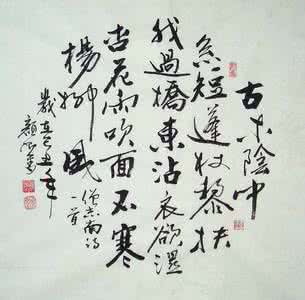 古木陰中
系短蓬杖藜扶
我過橋東沾衣欲濕
杏花雨吹面不寒
楊柳風
僧志南詩
一首
歲在己丑年
顏